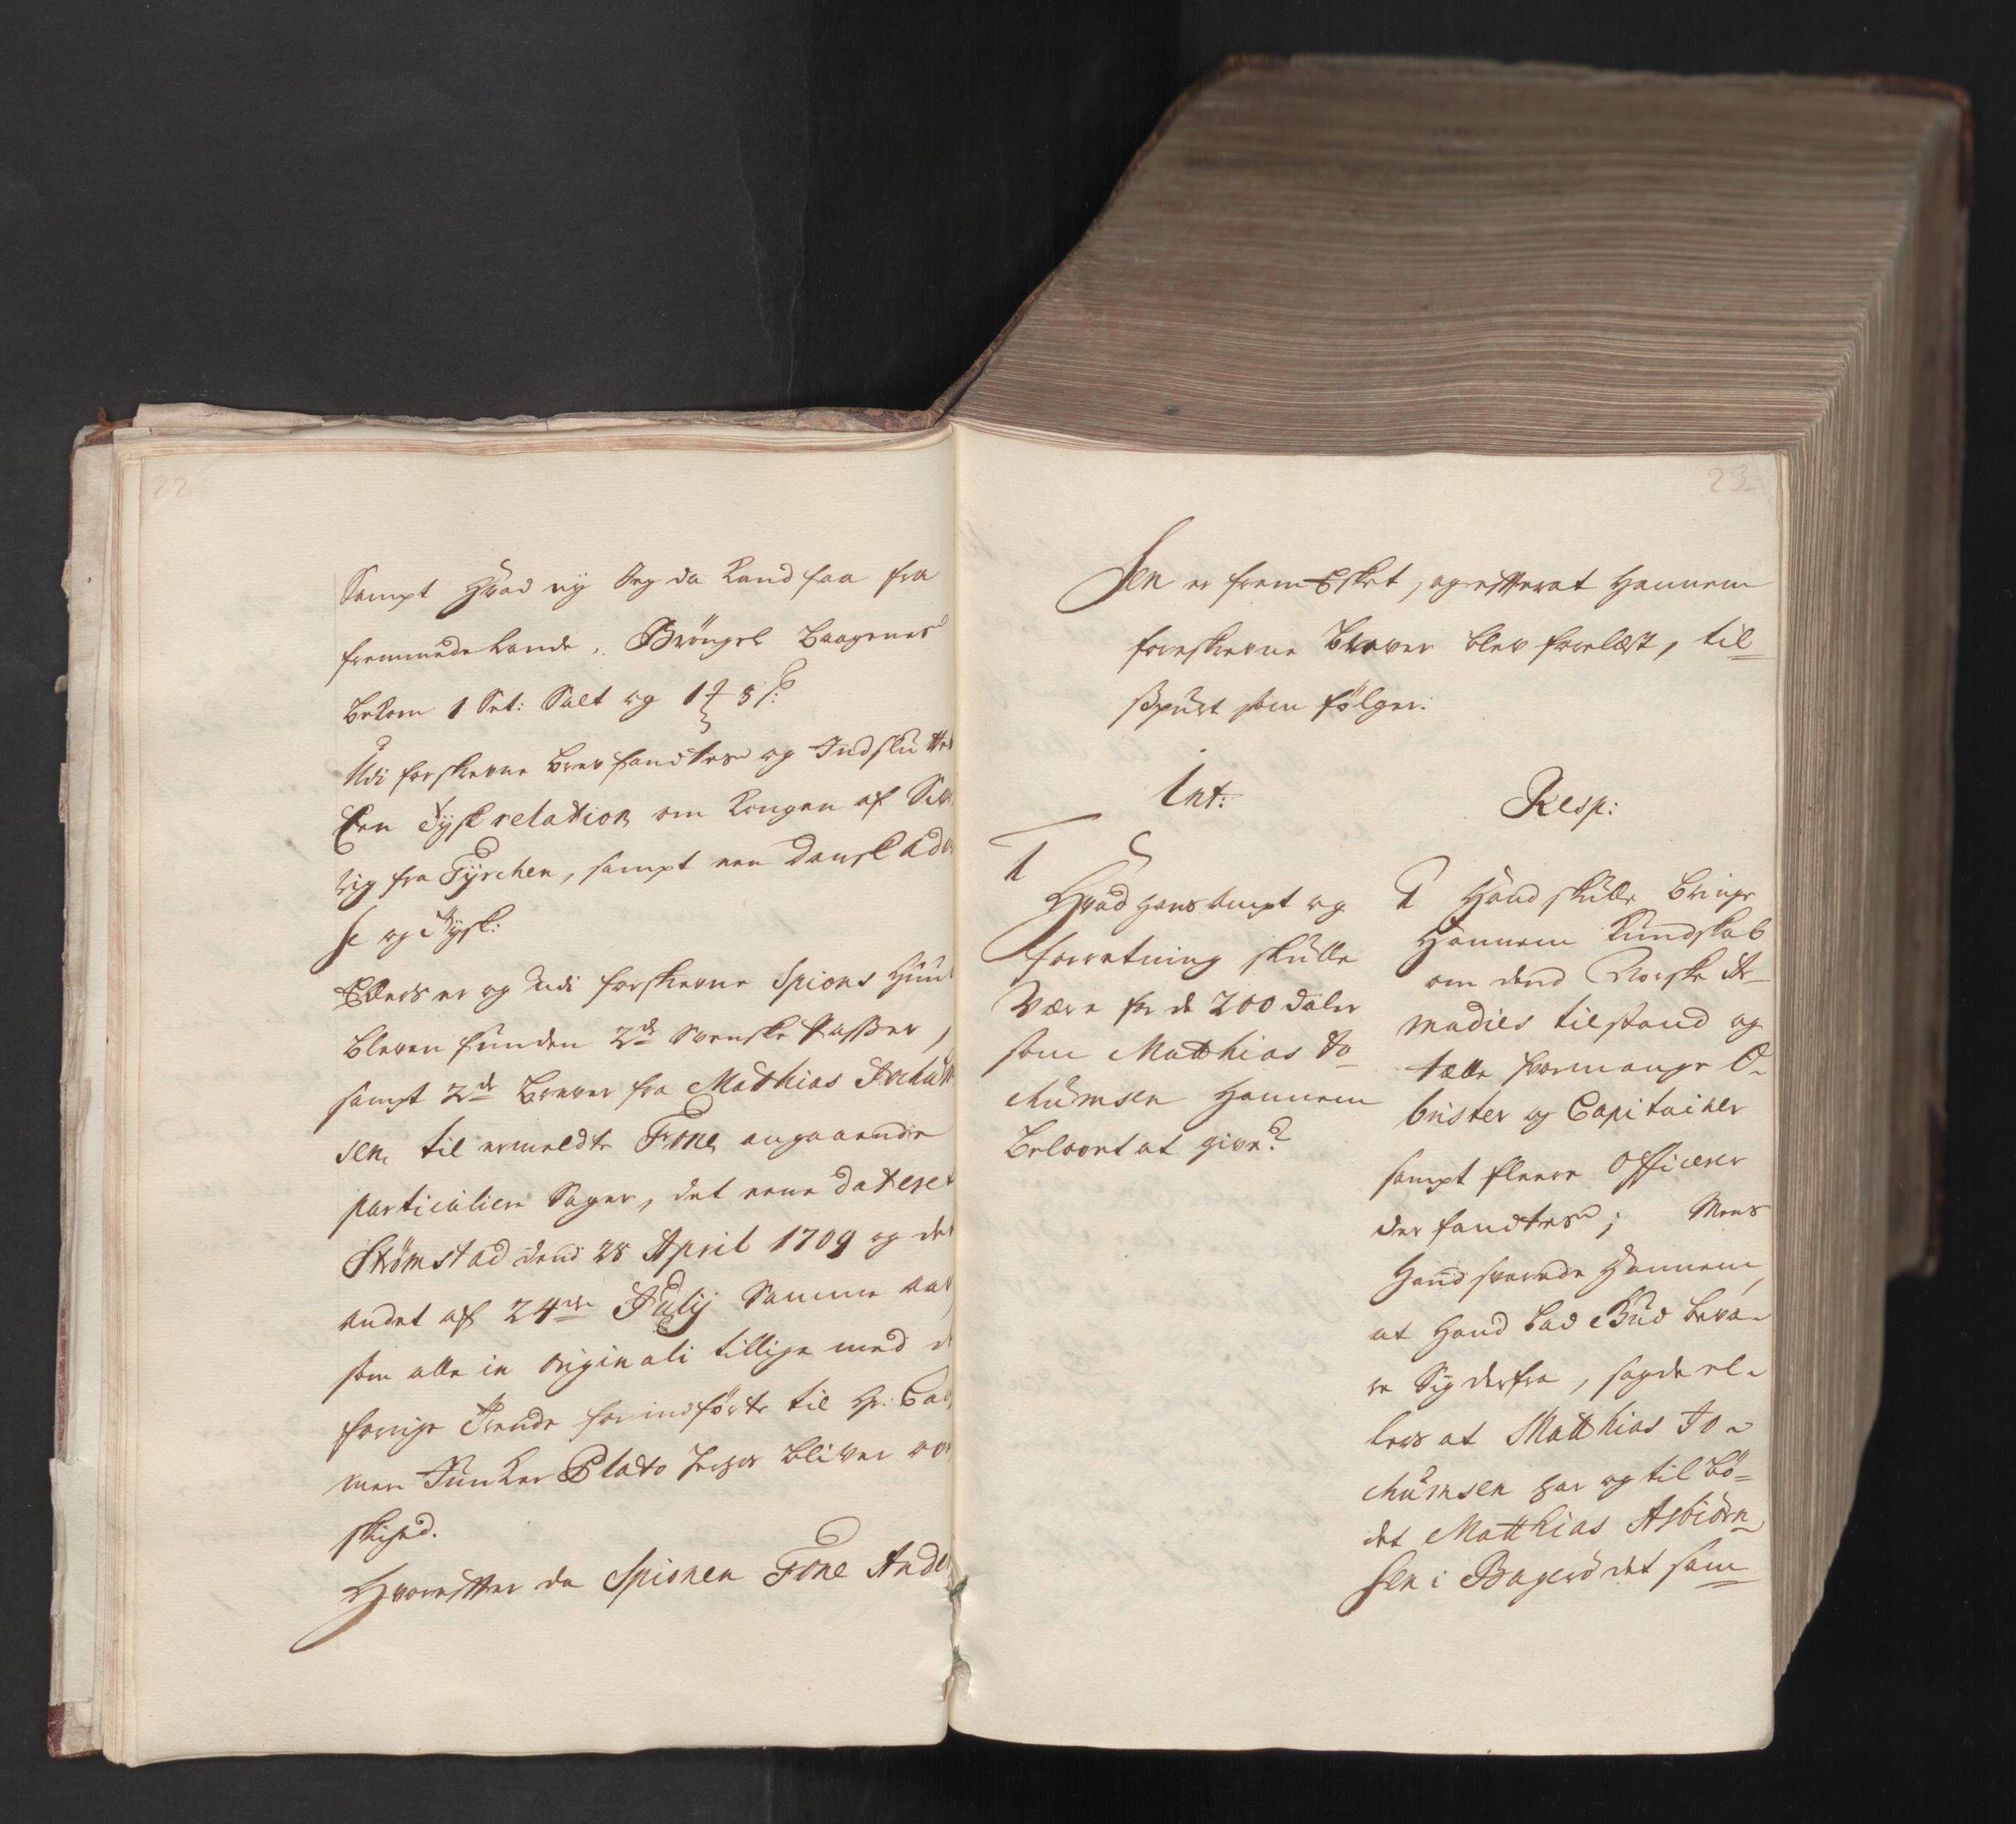 22
Sampt Hvad ny Jeg da kand faa fra
fremmede Lande. Bröngel Baagenes
bekom 1 Set: Salt og 1
Udi forskrevne brev fandtes og Indsluttet
Een Tysk relation om Kongen af Sve
rig fra Tyrchen, sampt een Dansk Ad
se og Tysk:
Ellers er og udi forskrevne Spions Huus
bleven funden 2de Svenske Passer,
sampt 2de brever fra Matthias Jochum
sen, til ermeldte Tone, angaaende
particulière Sager, det eene dateret
Strömstad dend 28 April 1709 og det
andet af 24de July Samme aar,
som alle in originali tillige med d
forrige Trende herindförte til Hr: Cam
mer Juncker Plato bliver over
skiked.
Hvorefter da Spionen Tone Ander
23
sen er frem Esket, og efterat Hannem
forskrevne brever blev forelæst, til
spurt som fölger:
Int:
1
Hvad hans Ampt og
forretning skulle
være for de 200 daler
som Matthias Jo-
chumsen Hannem
belovet at give?
Resp:
1 Hand skulle bringe
Hannem Kundskab
om dend Norske Ar-
madies tilstand og
tælle hvormange O-
brister og Capitainer
sampt fleere Officerer
der fandtes; Mens
Hand svarede Hannem,
at Hand bad Gud beva-
re Sig derfra, sagde el-
lers at Matthias Jo-
chumsen har og tilbö-
det Matthias Asbiörn-
sen i Bagerö det sam